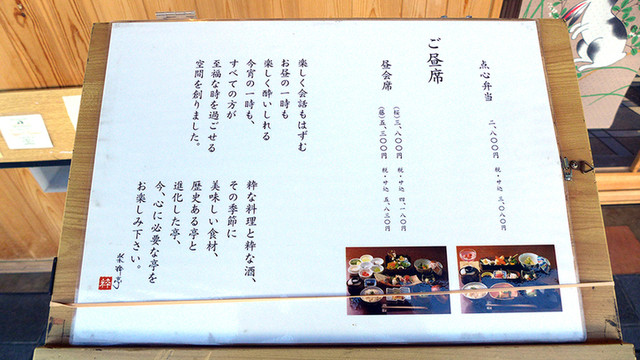 ご昼席
点心弁当
二、八〇〇円 税・サ込 三、〇八〇円
昼会席
(桜)三、八〇〇円 税・サ込 四、一八〇円
(藤)五、三〇〇円 税・サ込 五、八三〇円
楽しく会話もはずむ
お昼の一時も
楽しく酔いしれる
今宵の一時も、
すべての方が
至福な時を過ごせる
空間を創りました。
粋な料理と粋な酒、
その季節に
美味しい食材、
歴史ある亭と
進化した亭、
今、心に必要な亭を
お楽しみ下さい。